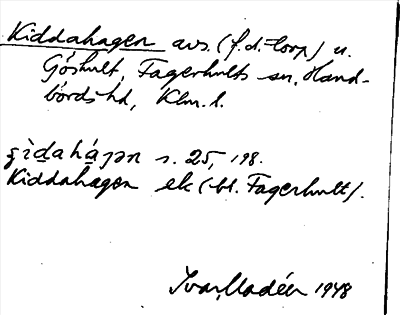 Kiddahagen avs. (f.d. torp) u.
Göshult, Fagerhults sn, Hand-
börds hd, Klm. l.
s. 25, 198.
Kiddahagen ek (bl. Fagerhult).
Ivar Modéer 1948